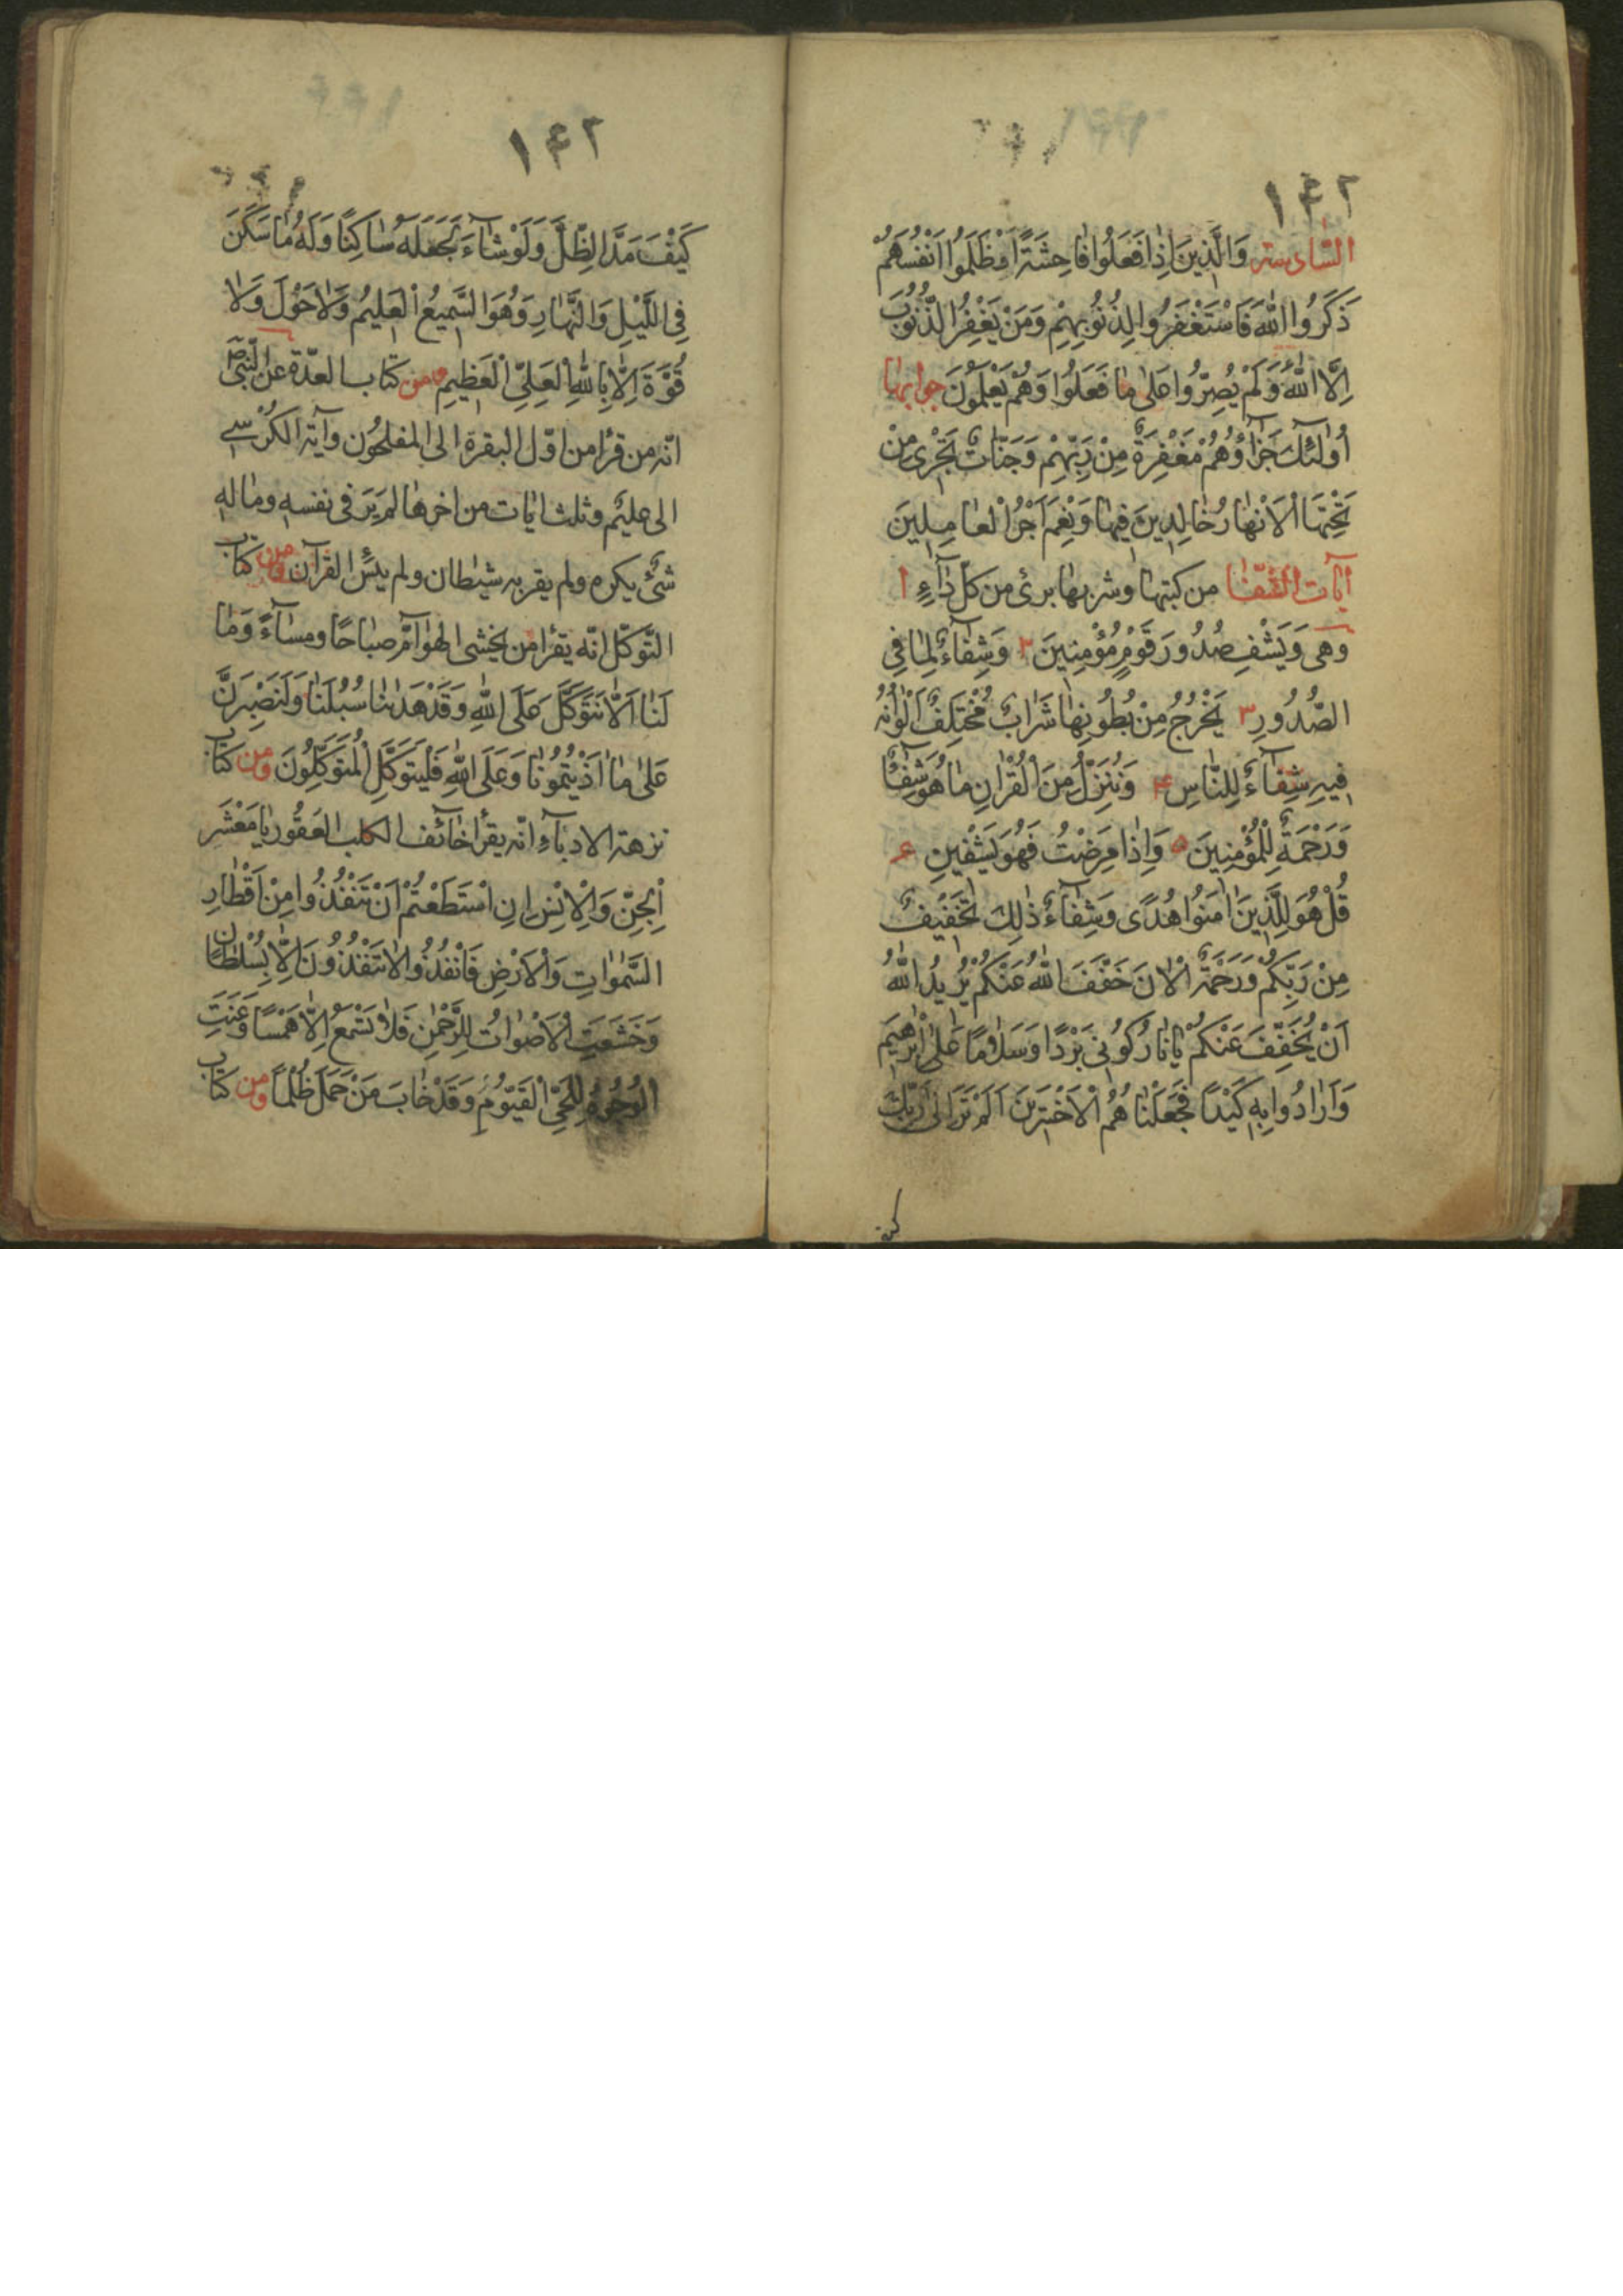 ١٤٢
السادسة وَالَّذِينَ اِذَا فَعَلُوا فَاحِشَةً اَوْ ظَلَمُوا اَنْفُسَهُمْ
ذَكَرُوا اللهَ فَاسْتَغْفَرُوا لِذُنُوبِهِمْ وَمَنْ يَغْفِرُ الذُّنُوبَ
اِلَّا اللهُ وَلَمْ يُصِرُّوا عَلىٰ مَا فَعَلُوا وَهُمْ يَعْلَمُونَ جوابها
اُولٰئِكَ جَزَآؤُهُمْ مَغْفِرَةٌ مِنْ رَبِّهِمْ وَجَنَّاتٌ تَجْرِى مِنْ
تَحْتِهَا الْاَنْهَارُ خَالِدِينَ فِيهَا وَنِعْمَ اَجْرُ الْعَامِلِينَ
آيات الشفا من كتبها وشربها برئ من كل دَآءٍ ١
وهى وَيَشْفِ صُدُورَ قَوْمٍ مُؤْمِنِينَ ٢ وَشِفَآءٌ لِمَا فِى
الصُّدُورِ ٣ يَخْرُجُ مِنْ بُطُونِهَا شَرَابٌ مُخْتَلِفٌ اَلْوَانُهُ
فِيهِ شِفَآءٌ لِلنَّاسِ ۴ وَنُنَزِّلُ مِنَ الْقُرْاٰنِ مَا هُوَ شِفَآءٌ
وَرَحْمَةٌ لِلْمُؤْمِنِينَ ۵ وَاِذَا مَرِضْتُ فَهُوَ يَشْفِينِ ۶
قُلْ هُوَ لِلَّذِينَ اٰمَنُوا هُدًى وَشِفَآءٌ ذٰلِكَ تَخْفِيفٌ
مِنْ رَبِّكُمْ وَرَحْمَةٌ اَلْاٰنَ خَفَّفَ اللهُ عَنْكُمْ يُرِيدُ اللهُ
اَنْ يُخَفِّفَ عَنْكُمْ يَا نَارُ كُونِى بَرْدًا وَسَلَامًا عَلىٰ اِبْرٰهِيمَ
وَاَرَادُوا بِهِ كَيْدًا فَجَعَلْنَاهُمُ الْاَخْسَرِينَ اَلَمْ تَرَ اِلىٰ رَبِّكَ
١٤٢
كَيْفَ مَدَّ الظِّلَّ وَلَوْ شَآءَ لَجَعَلَهُ سَاكِنًا وَلَهُ مَا سَكَنَ
فِى اللَّيْلِ وَالنَّهَارِ وَهُوَ السَّمِيعُ الْعَلِيمُ وَلَا حَوْلَ وَلَا
قُوَّةَ اِلَّا بِاللهِ الْعَلِىِّ الْعَظِيمِ ومن كتاب العدّة عن النّبىّ ص
انّه من قرأ من اوّل البقرة الى المفلحُون وآية الكرسى
الى عليم وثلث ايات من اخرها لم يَرَ فى نفسه وماله
شئ يكره ولم يقربه شيطان ولم ينس القرآن ومن كتاب
التّوكّل انّه يقرأ من يخشى الهوآمّ صباحًا ومسآءً وَمَا
لَنَا اَلَّا نَتَوَكَّلَ عَلَى اللهِ وَقَدْ هَدٰنَا سُبُلَنَا وَلَنَصْبِرَنَّ
عَلىٰ مَا اٰذَيْتُمُونَا وَعَلَى اللهِ فَلْيَتَوَكَّلِ الْمُتَوَكِّلُونَ ومن كتاب
نزهة الادبآءِ انّه يقرأ خآئف الكلب العَقُور يَا مَعْشَرَ
الْجِنِّ وَالْاِنْسِ اِنِ اسْتَطَعْتُمْ اَنْ تَنْفُذُوا مِنْ اَقْطَارِ
السَّمٰوَاتِ وَالْاَرْضِ فَانْفُذُوا لَا تَنْفُذُونَ اِلَّا بِسُلْطَانٍ
وَخَشَعَتِ الْاَصْوَاتُ لِلرَّحْمٰنِ فَلَا تَسْمَعُ اِلَّا هَمْسًا وَعَنَتِ
الْوُجُوهُ لِلْحَىِّ الْقَيُّومِ وَقَدْ خَابَ مَنْ حَمَلَ ظُلْمًا ومن كتاب